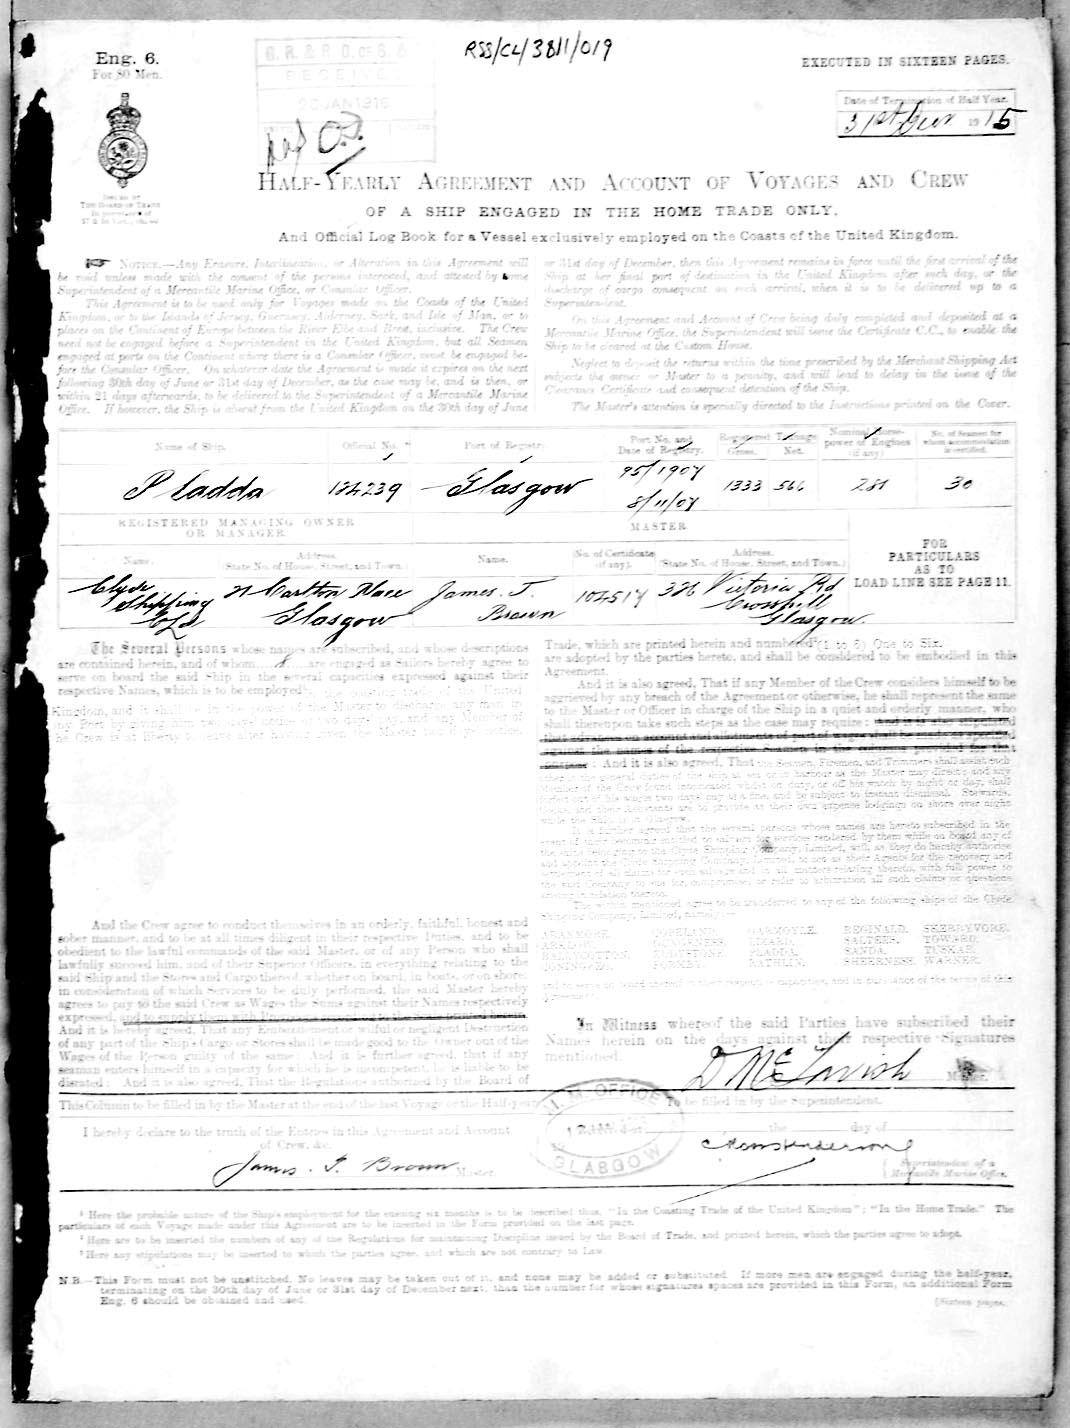 RSS/CL/3811/019
Eng. 6.
For 80 Men.
EXECUTED IN SIXTEEN PAGES.
G. R. & R. O. OF S. &
RECEIVE
20 JAN 1916
Date of Termination of Half Year.
31st Decr 1915
HALF-YEARLY AGREEMENT AND ACCOUNT OF VOYAGES AND CREW
OF A SHIP ENGAGED IN THE HOME TRADE ONLY,
And Official Log Book for a Vessel exclusively employed on the Coasts of the United Kingdom.
ISSUED BY
THE BOARD OF TRADE
NOTICE.—Any Erasure, Interlineation, or Alteration in this Agreement will
be void unless made with the consent of the persons interested, and attested by some
Superintendent of a Mercantile Marine Office, or Consular Officer.
This Agreement is to be used only for Voyages made on the Coasts of the United
Kingdom, or to the Islands of Jersey, Guernsey, Alderney, Sark, and Isle of Man, or to
places on the Continent of Europe between the River Elbe and Brest, inclusive. The Crew
need not be engaged before a Superintendent in the United Kingdom, but all Seamen
engaged at ports on the Continent where there is a Consular Officer, must be engaged be-
fore the Consular Officer. On whatever date the Agreement is made it expires on the next
following 30th day of June or 31st day of December, as the case may be, and is then, or
within 21 days afterwards, to be delivered to the Superintendent of a Mercantile Marine
Office. If however, the Ship is absent from the United Kingdom on the 30th day of June
or 31st day of December, then this Agreement remains in force until the first arrival of the
Ship at her final port of destination in the United Kingdom after such day, or the
discharge of cargo consequent on such arrival, when it is to be delivered up to a
Superintendent.
On this Agreement and Account of Crew being duly completed and deposited at a
Mercantile Marine Office, the Superintendent will issue the Certificate C.C., to enable the
Ship to be cleared at the Custom House.
Neglect to deposit the returns within the time prescribed by the Merchant Shipping Act
subjects the owner or Master to a penalty, and will lead to delay in the issue of the
Clearance Certificate and consequent detention of the Ship.
The Master's attention is specially directed to the Instructions printed on the Cover.
Name of Ship. Official No. Port of Registry. Port No. and Date of Registry. Registered Tonnage Gross. Net. Nominal Horse-power of Engines (if any) No. of Seamen for whom accommodation is certified.
Pladda 124239 Glasgow 95/1907 8/11/07 1333 566 281 30
REGISTERED MANAGING OWNER OR MANAGER. MASTER
Name. Address. (State No. of House, Street, and Town) Name. No. of Certificate (if any). Address. (State No. of House, Street, and Town.)
FOR
PARTICULARS
AS TO
LOAD LINE SEE PAGE 11.
Clyde Shipping Co Ld 21 Carlton Place Glasgow James. T. Brown 104517 326 Victoria Rd Crosshill Glasgow.
The Several Persons whose names are subscribed, and whose descriptions
are contained herein, and of whom 8 are engaged as Sailors hereby agree to
serve on board the said Ship in the several capacities expressed against their
respective Names, which is to be employed
Kingdom, and it shall be in the power of the Master to discharge any man in
And the Crew agree to conduct themselves in an orderly, faithful, honest and
sober manner, and to be at all times diligent in their respective Duties, and to be
obedient to the lawful commands of the said Master, or of any Person who shall
lawfully succeed him, and of their Superior Officers, in everything relating to the
said Ship and the Stores and Cargo thereof, whether on board, in boats, or on shore:
in consideration of which Services to be duly performed, the said Master hereby
agrees to pay to the said Crew as Wages the Sums against their Names respectively
expressed, and to supply them with Provisions according to the Scale printed herein.
And it is hereby agreed, That any Embezzlement or wilful or negligent Destruction
of any part of the Ship's Cargo or Stores shall be made good to the Owner out of the
Wages of the Person guilty of the same: And it is further agreed, that if any
seaman enters himself in a capacity for which he is incompetent, he is liable to be
disrated: And it is also agreed, That the Regulations authorised by the Board of
Trade, which are printed herein and numbered (1 to 6) One to Six.
are adopted by the parties hereto, and shall be considered to be embodied in this
Agreement.
And it is also agreed, That if any Member of the Crew considers himself to be
aggrieved by any breach of the Agreement or otherwise, he shall represent the same
to the Master or Officer in charge of the Ship in a quiet and orderly manner, who
shall thereupon take such steps as the case may require: and it is also stipulated
that advances on account and allotments of part of wages shall be made as specified
against the names of the respective Seamen in the columns provided for that
purpose: And it is also agreed, That the Seamen, Firemen, and Trimmers shall assist each
other in the general duties of the ship at sea or in harbour as the Master may direct; and any
Member of the Crew found intoxicated whilst on duty, or off his watch by night or day, shall
forfeit out of his wages two days' pay as a fine, and be subject to instant dismissal. Stewards,
while the Ship is in Glasgow.
It is further agreed that the several persons whose names are hereto subscribed in the
event of their becoming entitled to salvage for services rendered by them while on board any of
the ships belonging to the Clyde Shipping Company, Limited, will, as they do hereby authorise
and appoint the Clyde Shipping Company, Limited, to act as their Agents for the recovery and
settlement of all claims for such salvage and in all matters relating thereto, with full power to
the said Company to sue for, compromise, or refer to arbitration all such claims or questions
arising in relation thereto.
The within mentioned agree to be transferred to any of the following ships of the Clyde
Shipping Company, Limited, namely:—
ARANMORE. COPELAND. GARMOYLE. REGINALD. SKERRYVORE.
SALTEES. TOWARD.
PLADDA. SANDA. TUSKAR.
SHEERNESS. WARNER.
In Witness whereof the said Parties have subscribed their
Names herein on the days against their respective Signatures
mentioned.
D McTavish Master.
This Column to be filled in by the Master at the end of the last Voyage or the Half-year
To be filled in by the Superintendent.
I hereby declare to the truth of the Entries in this Agreement and Account
of Crew, &c.
James. T. Brown Master.
M. M. OFFICE
GLASGOW
the day of
Superintendent of a
Mercantile Marine Office.
¹ Here the probable nature of the Ship's employment for the ensuing six months is to be described thus, "In the Coasting Trade of the United Kingdom"; "In the Home Trade." The
particulars of each Voyage made under this Agreement are to be inserted in the Form provided on the last page.
² Here are to be inserted the numbers of any of the Regulations for maintaining Discipline issued by the Board of Trade, and printed herein, which the parties agree to adopt.
³ Here any stipulations may be inserted to which the parties agree, and which are not contrary to Law.
N.B.—This Form must not be unstitched. No leaves may be taken out of it, and none may be added or substituted. If more men are engaged during the half-year,
terminating on the 30th day of June or 31st day of December next, than the number for whose signatures spaces are provided in this Form, an additional Form
Eng. 6 should be obtained and used.
[Sixteen pages.